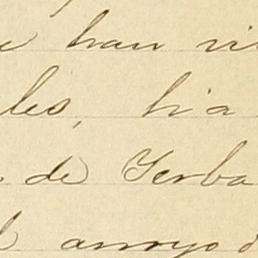 e han vi
les, hà
de Yerba
arroyo d